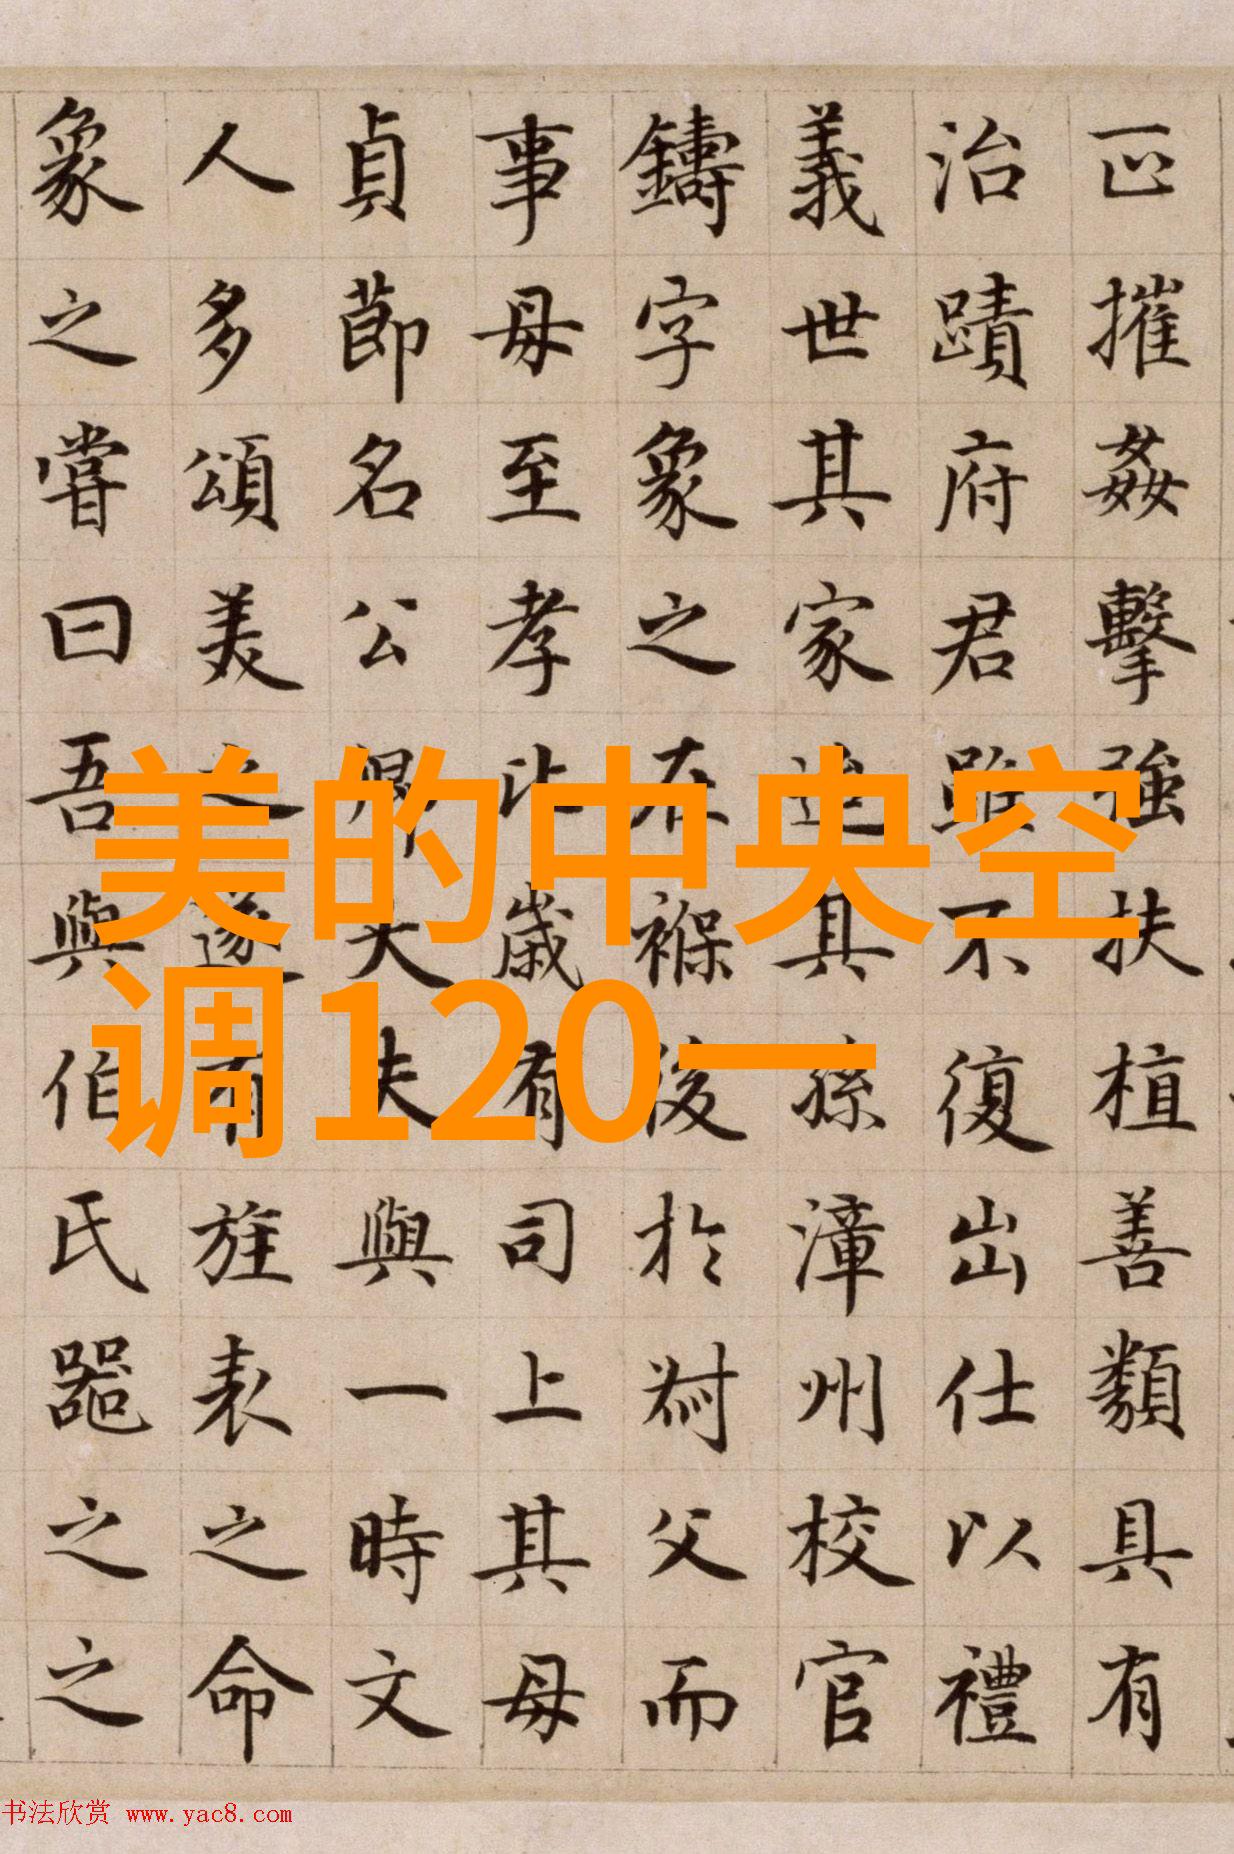 摧姦擊強扶植善類具有
治蹟府君雖不復出仕以禮
義世其家其孫漳州校官
鑄字象之在褓後於父而
事母至孝比歲有司上其母
貞節名公卿大夫與一時文
人多頌美之遂有旌表之命
象之嘗曰吾與伯氏器之之
美的中央空
调120一
书法欣赏 www.yac8.com